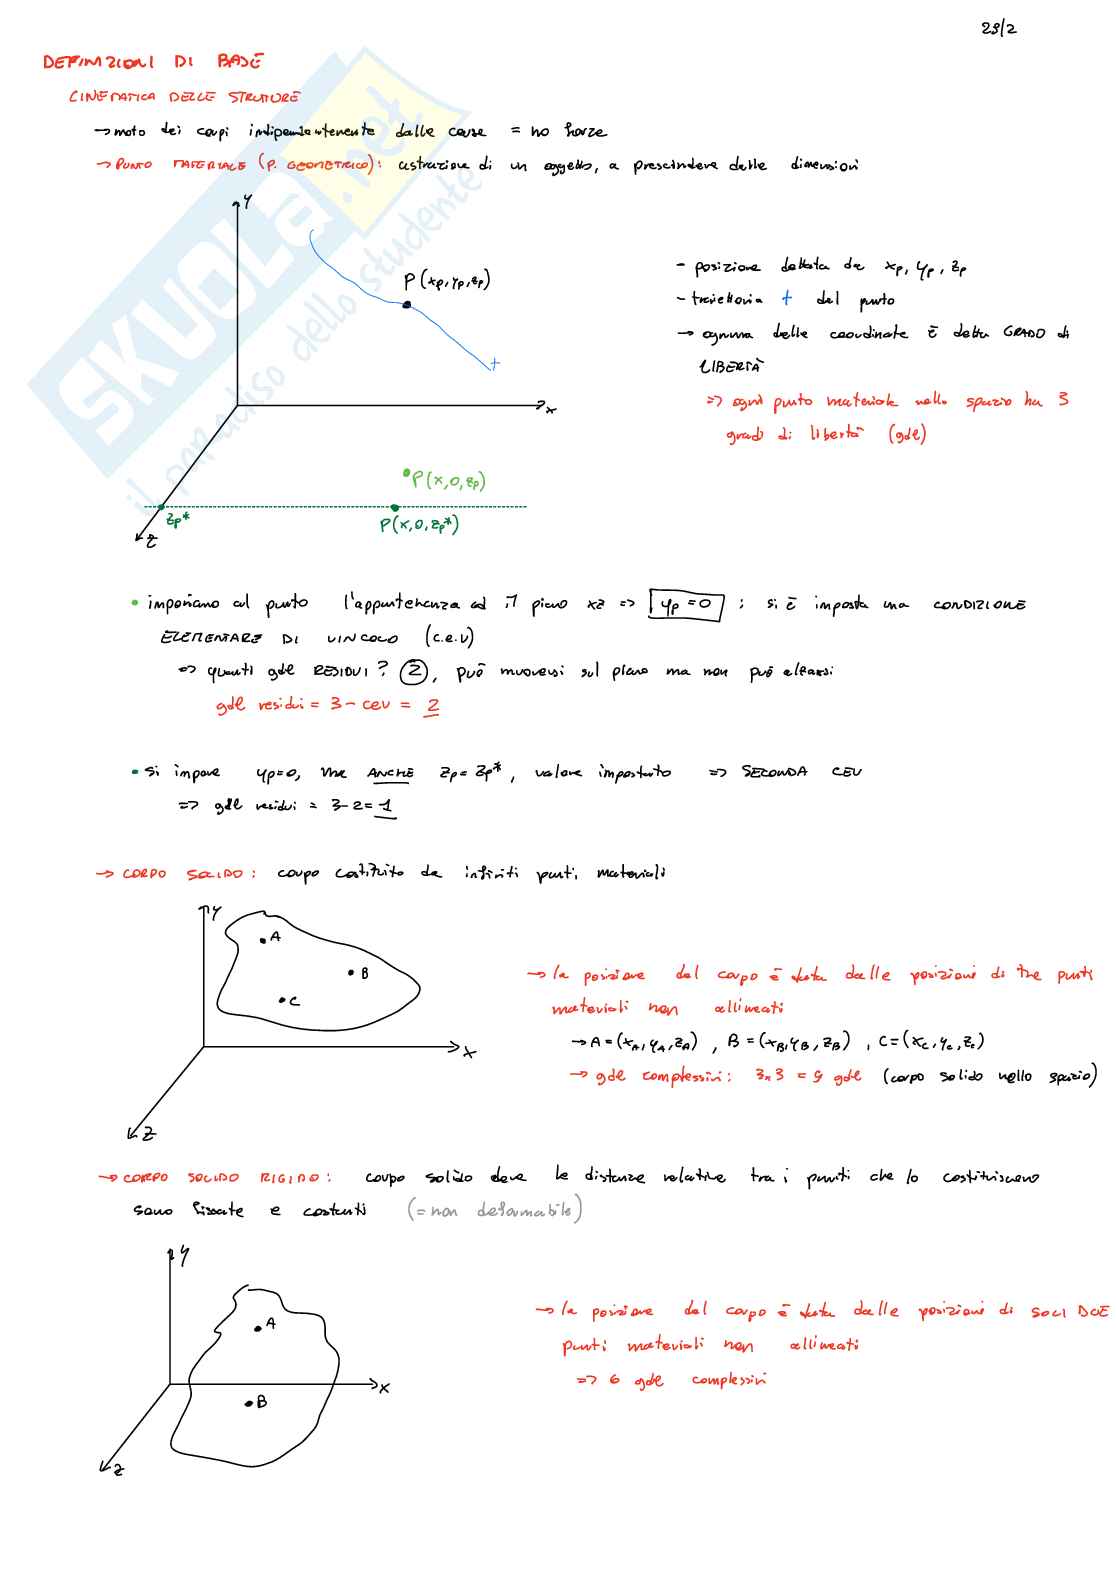 23/2
DEFINIZIONI DI BASE
CINEMATICA DELLE STRUTTURE
→ moto dei corpi indipendentemente dalle cause = no forze
→ PUNTO MATERIALE (P. GEOMETRICO): astrazione di un oggetto, a prescindere dalle dimensioni
y
P (xp, yp, zp)
+
x
P (x, 0, zp)
zp*
P(x, 0, zp*)
z
- posizione dettata da xp, yp, zp
- traiettoria + del punto
→ ognuna delle coordinate è detta GRADO di
LIBERTÀ
=> ogni punto materiale nello spazio ha 3
gradi di libertà (gdl)
• imponiamo al punto l'appartenenza ad il piano xz => yp = 0 ; si è imposta una CONDIZIONE
ELEMENTARE DI VINCOLO (c.e.v)
=> quanti gdl RESIDUI? 2, può muoversi sul piano ma non può alzarsi
gdl residui = 3 - cev = 2
• si impone yp=0, ma ANCHE zp= zp*, valore impostato => SECONDA CEV
=> gdl residui = 3-2= 1
→ CORPO SOLIDO: corpo costituito da infiniti punti materiali
y
A
B
C
x
z
→ la posizione del corpo è data dalle posizioni di tre punti
materiali non allineati
→ A = (xA, yA, zA), B = (xB, yB, zB), C = (xC, yC, zC)
→ gdl complessivi: 3x3 = 9 gdl (corpo solido nello spazio)
→ CORPO SOLIDO RIGIDO: corpo solido dove le distanze relative tra i punti che lo costituiscono
sono fissate e costanti (= non deformabile)
y
A
B
x
z
→ la posizione del corpo è data dalle posizioni di SOLI DUE
punti materiali non allineati
=> 6 gdl complessivi
SKUOLA.net
il paradiso dello studente